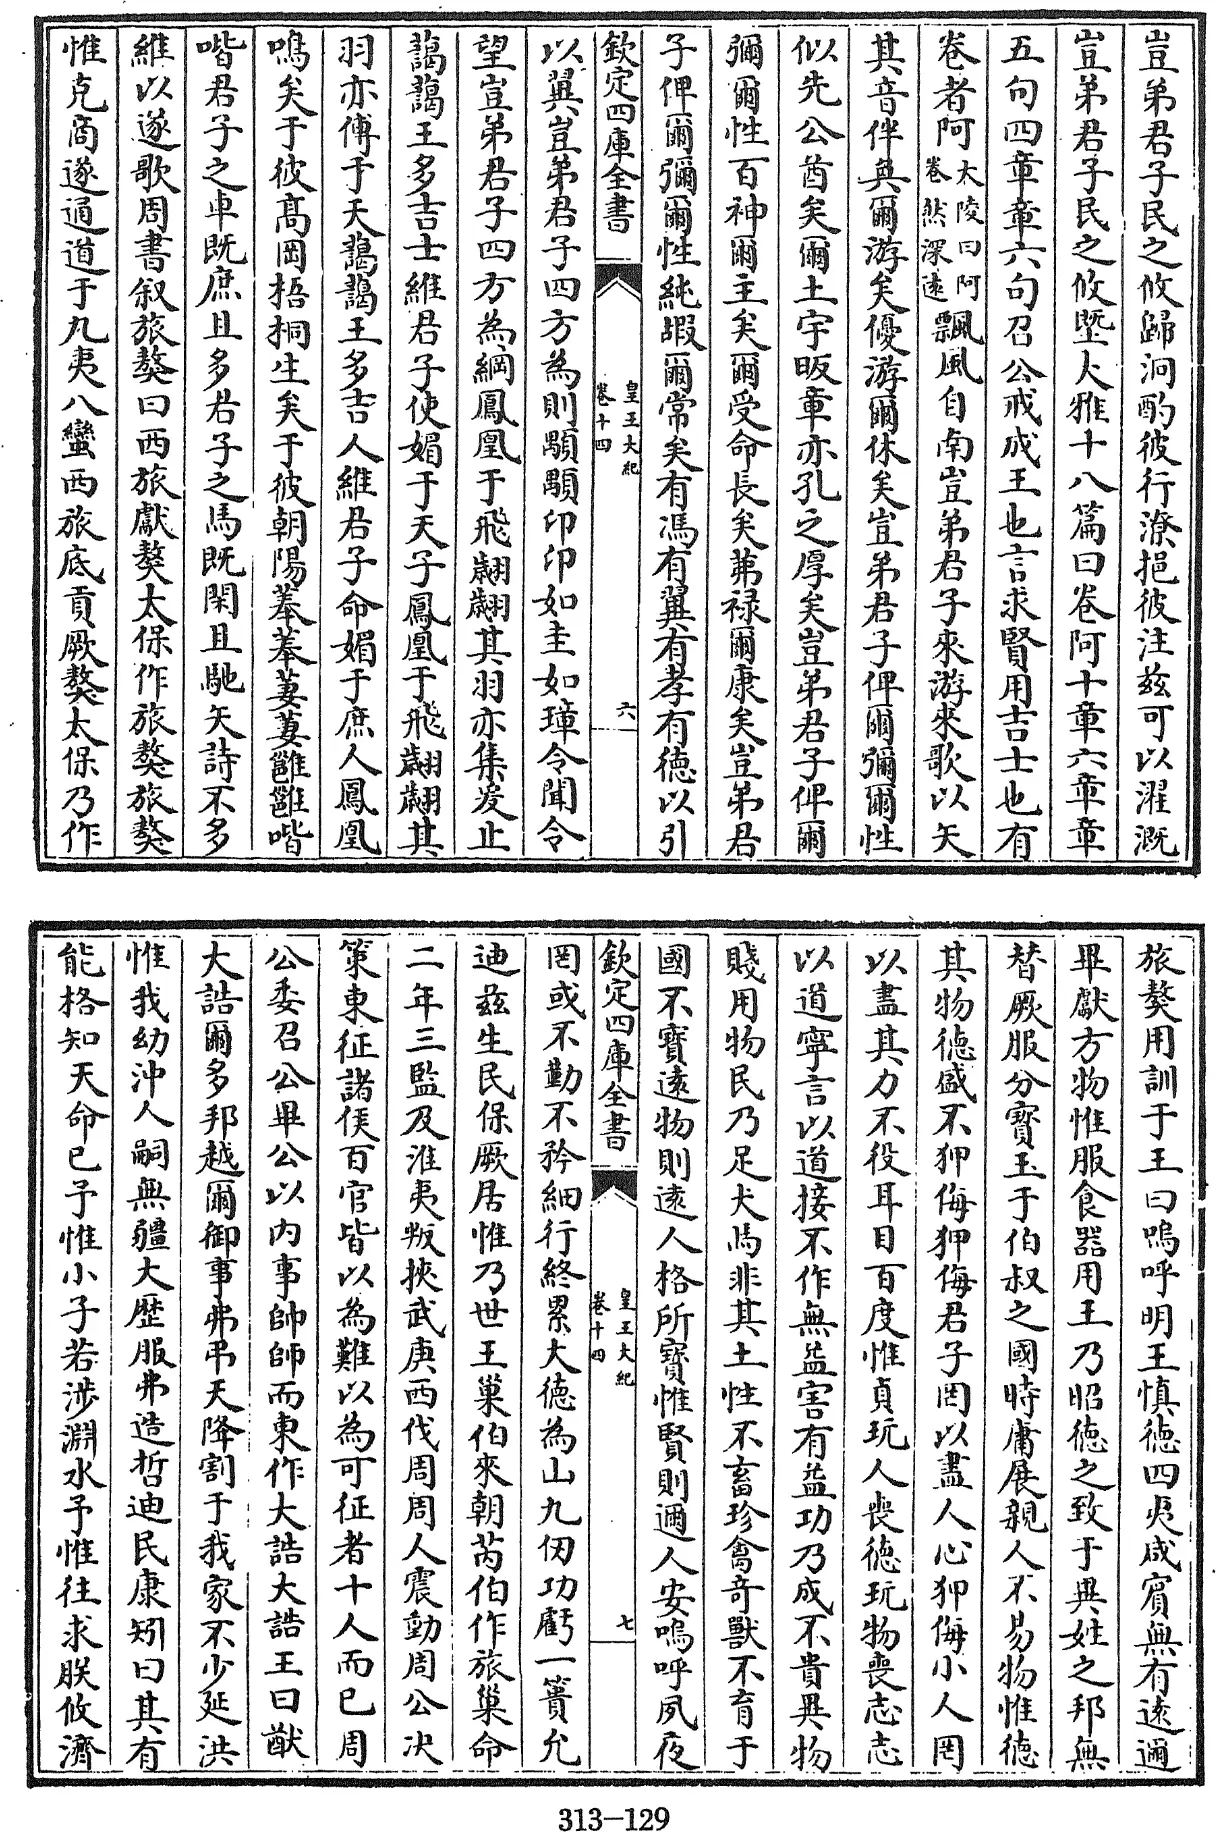 豈弟君子民之攸歸泂酌彼行潦挹彼注兹可以濯溉
豈弟君子民之攸塈大雅十八篇曰卷阿十章六章章
五句四章章六句召公戒成王也言求賢用吉士也有
卷者阿大陵曰阿卷然深遠飄風自南豈弟君子來游來歌以矢
其音伴奐爾游矣優游爾休矣豈弟君子俾爾彌爾性
似先公酋矣爾土宇昄章亦孔之厚矣豈弟君子俾爾
彌爾性百神爾主矣爾受命長矣茀禄爾康矣豈弟君
子俾爾彌爾性純嘏爾常矣有馮有翼有孝有徳以引
欽定四庫全書
皇王大紀
卷十四
六
以翼豈弟君子四方為則顒顒卬卬如圭如璋令聞令
望豈弟君子四方為綱鳳凰于飛翽翽其羽亦集爰止
藹藹王多吉士維君子使媚于天子鳳凰于飛翽翽其
羽亦傅于天藹藹王多吉人維君子命媚于庶人鳳凰
鳴矣于彼髙岡梧桐生矣于彼朝陽菶菶萋萋雝雝喈
喈君子之車既庶且多君子之馬既閑且馳矢詩不多
維以遂歌周書叙旅獒曰西旅獻獒太保作旅獒旅獒
惟克商遂通道于九夷八蠻西旅底貢厥獒太保乃作
旅獒用訓于王曰嗚呼明王慎徳四夷咸賓無有遠邇
畢獻方物惟服食器用王乃昭徳之致于異姓之邦無
替厥服分寳玉于伯叔之國時庸展親人不易物惟徳
其物徳盛不狎侮狎侮君子罔以盡人心狎侮小人罔
以盡其力不役耳目百度惟貞玩人喪徳玩物喪志志
以道寧言以道接不作無益害有益功乃成不貴異物
賤用物民乃足犬馬非其土性不畜珍禽奇獸不育于
國不寳遠物則遠人格所寳惟賢則邇人安嗚呼夙夜
欽定四庫全書
皇王大紀
卷十四
七
罔或不勤不矜細行終累大徳為山九仞功虧一簣允
迪兹生民保厥居惟乃世王巢伯來朝芮伯作旅巢命
二年三監及淮夷叛挾武庚西伐周周人震動周公决
策東征諸侯百官皆以為難以為可征者十人而已周
公委召公畢公以内事帥師而東作大誥大誥王曰猷
大誥爾多邦越爾御事弗弔天降割于我家不少延洪
惟我幼沖人嗣無疆大歴服弗造哲迪民康矧曰其有
能格知天命已予惟小子若涉淵水予惟往求朕攸濟
313-129